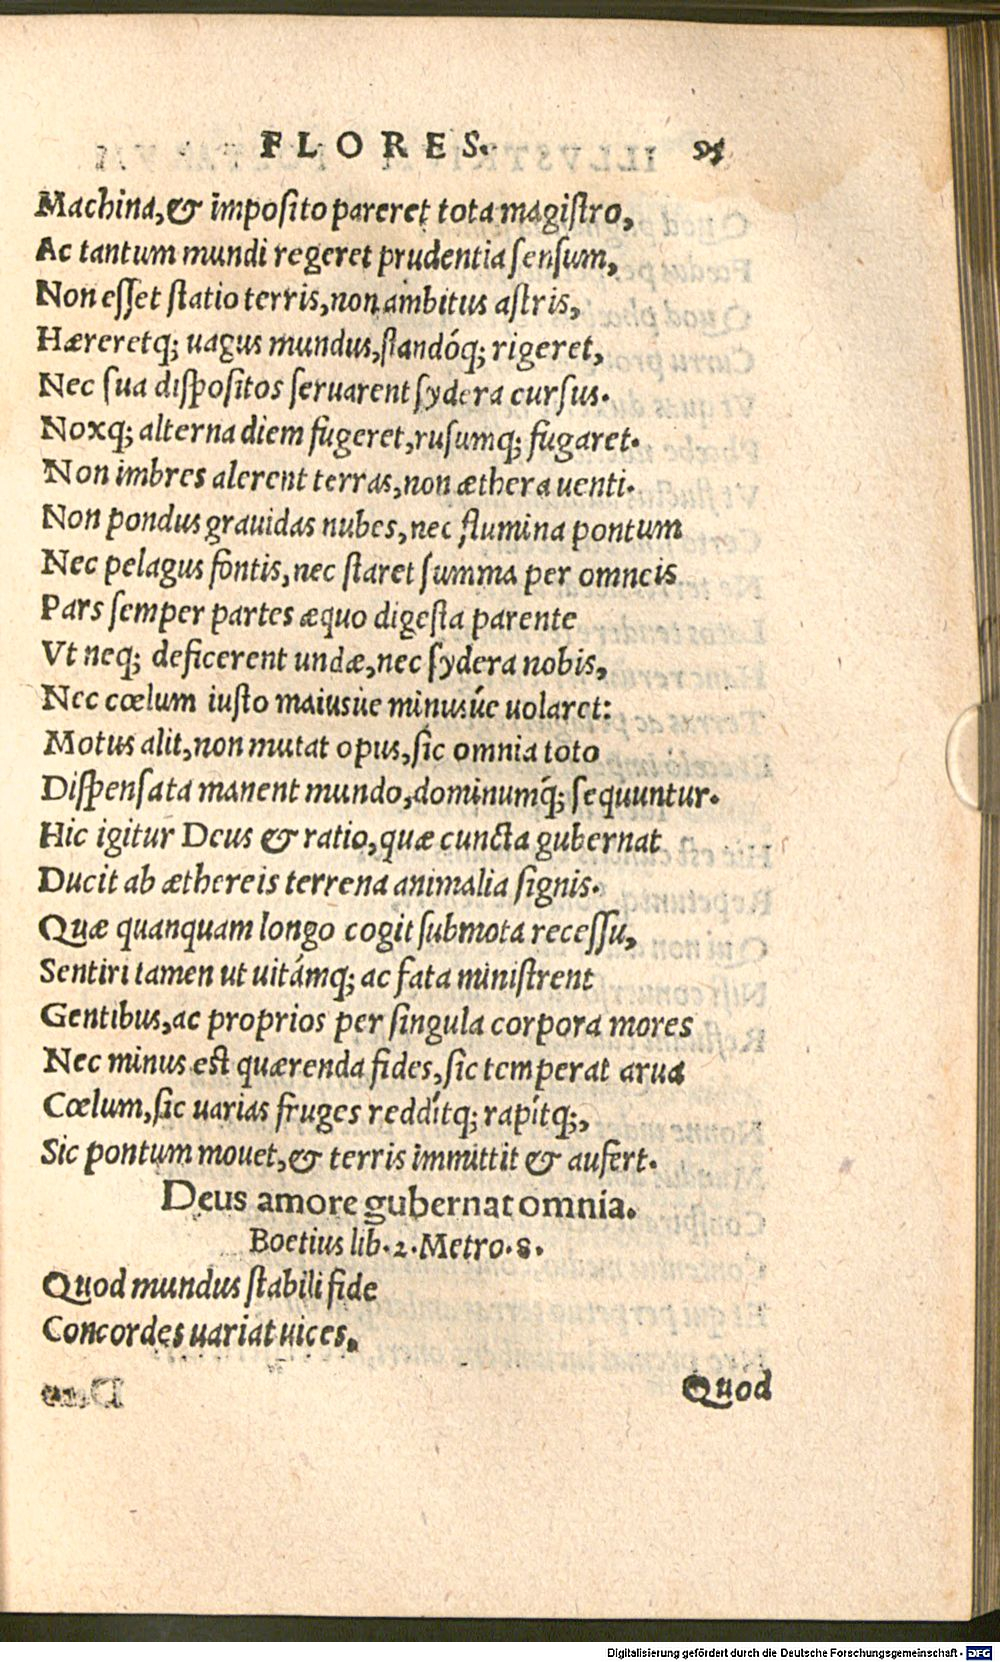 FLORES. 95
Machina,& imposito pareret tota magistro,
Ac tantum mundi regeret prudentia sensum,
Non esset statio terris,non ambitus astris,
Hæreretq; uagus mundus,standóq; rigeret,
Nec sua dispositos seruarent sydera cursus.
Noxq; alterna diem fugeret,rusumq; fugaret.
Non imbres alerent terras,non æthera uenti.
Non pondus grauidas nubes,nec flumina pontum
Nec pelagus fontis,nec staret summa per omneis
Pars semper partes æquo digesta parente
Vt neq; deficerent undæ,nec sydera nobis,
Nec cœlum iusto maiusue minusúe uolaret:
Motus alit,non mutat opus,sic omnia toto
Dispensata manent mundo,dominumq́; sequuntur.
Hic igitur Deus & ratio,quæ cuncta gubernat
Ducit ab æthereis terrena animalia signis.
Quæ quanquam longo cogit submota recessu,
Sentiri tamen ut uitámq; ac fata ministrent
Gentibus,ac proprios per singula corpora mores
Nec minus est quærenda fides,sic temperat arua
Cœlum,sic uarias fruges reddítq; rapítq;,
Sic pontum mouet,& terris immittit & aufert.
Deus amore gubernat omnia.
Boetius lib.2.Metro.8.
Quod mundus stabili fide
Concordes uariat uices,
Quod
Digitalisierung gefördert durch die Deutsche Forschungsgemeinschaft - DFG